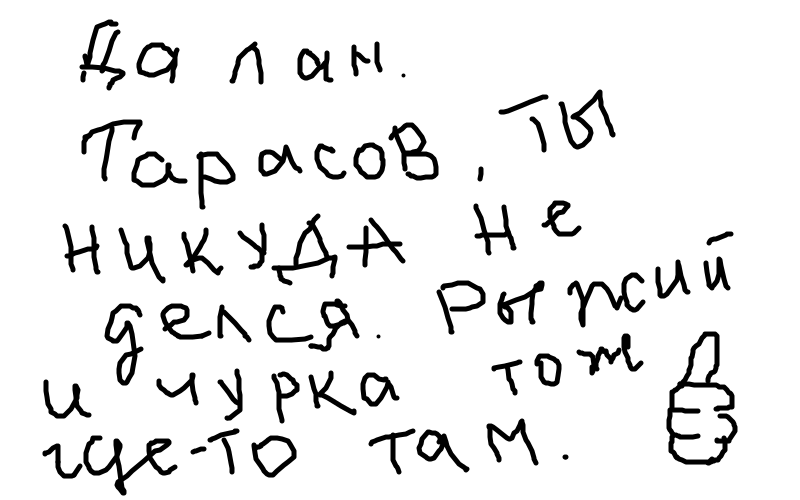 Да лан.
Тарасов, ты
никуда не
делся. Рыжий
и чурка тож
где-то там.